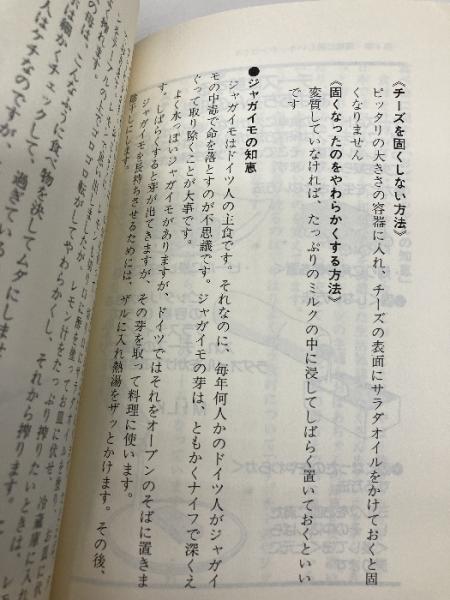 《チーズを固くしない方法》
ピッタリの大きさの容器に入れ、チーズの表面にサラダオイルをかけておくと固
くなりません
《固くなったのをやわらかくする方法》
変質していなければ、たっぷりのミルクの中に浸してしばらく置いておくといい
です
●ジャガイモの知恵
ジャガイモはドイツ人の主食です。それなのに、毎年何人かのドイツ人がジャガイ
モの中毒で命を落とすのが不思議です。ジャガイモの芽は、ともかくナイフで深くえ
ぐって取り除くことが大事です。
よく水っぽいジャガイモがありますが、ドイツではそれをオーブンのそばに置きま
す。しばらくすると芽が出てきますが、その芽を取って料理に使います。
ジャガイモを長持ちさせるためには、ザルに入れ熱湯をザッとかけます。その後、
陰干しにします。
レモン汁をたっぷり搾りたいときは、
ゴロゴロ転がしてやわらかくし、それから搾ります。
こんなふうに食べ物を決してムダにしませ
は細かくチェックして、
人はケチなのですが、過ぎている